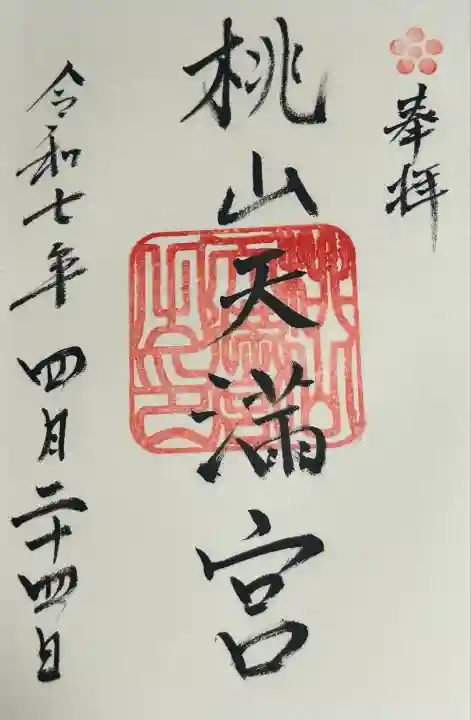 奉拝
桃山天満宮
令和七年 四月二十四日